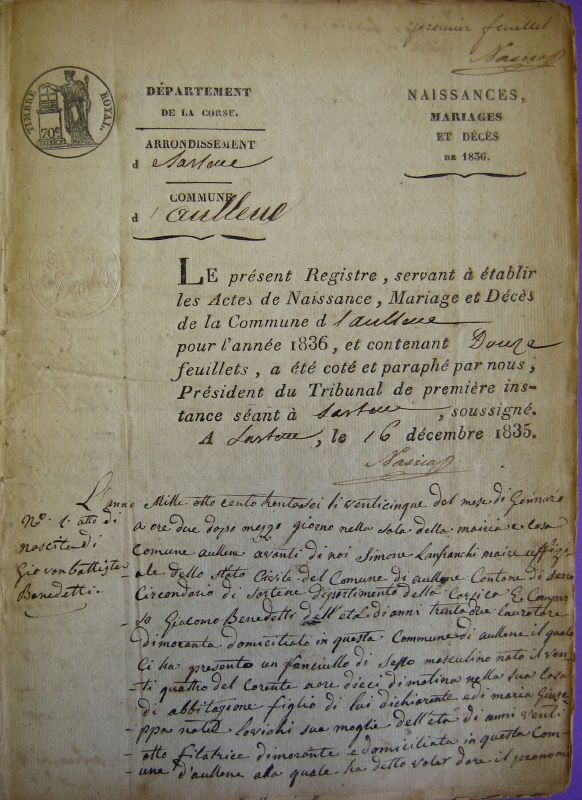 premier feuillet
TIMBRE ROYAL
70c
DÉPARTEMENT
DE LA CORSE.
ARRONDISSEMENT
d Sartene
COMMUNE
d'aullene
NAISSANCES,
MARIAGES
ET DÉCÈS
DE 1836.
LE présent Registre, servant à établir
les Actes de Naissance, Mariage et Décès
de la Commune d'aullene
pour l'année 1836, et contenant Douze
feuillets, a été coté et paraphé par nous,
Président du Tribunal de première ins-
tance séant à Sartene, soussigné.
A Sartene, le 16 décembre 1835.
N.º 1.º atto di
nascita di
Giovanbattista
Benedetti.
L'anno Mille otto cento trentasei li venticinque del mese di Gennaro
a ore due dopo mezzo giorno nella Sala della mairia e casa
Comune aullene avanti di noi Simone Lanfranchi maire uffizi-
ale dello Stato Civile del Comune di aullene Contone di
Circondario di Sartene dipartimento della Corsica E Compar-
so Giacomo Benedetti dell'età di anni trenta due lavoratore
dimorante domiciliato in questa Commune di aullene il quale
Ci ha presento un fanciullo di Sesso masculino nato il ven-
ti quattro del corente a ore dieci di matina nella sua Casa
di abbitazione figlio di lui dichiarante e di maria Giuse-
ppa nata Lovichi sua moglie dell'età di anni venti
otto filatrice dimorante e domiciliata in questa Com-
une d'aullene alla quale ha detto voler dare il pronome